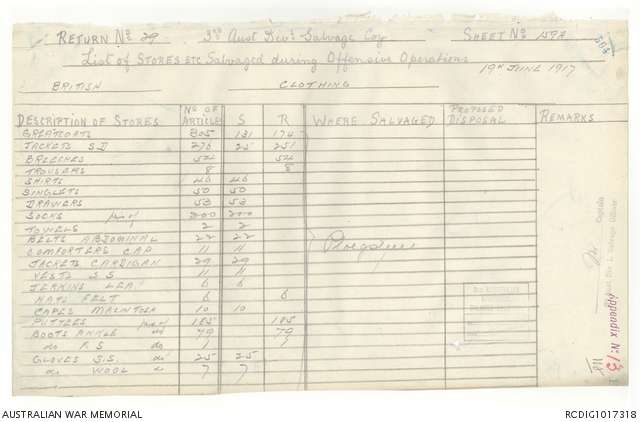 RETURN No 29 3RD Aust Divl Salvage Coy SHEET No 15PA
List of STORES ETC Salvaged during Offensive Operations
19TH JUNE 1917
BRITISH CLOTHING
DESCRIPTION OF STORES No OF ARTICLES S R WHERE SALVAGED PROPOSED DISPOSAL REMARKS
GREATCOATS 305 131 174
JACKETS S.D 276 25 251
BREECHES 54 54
TROUSERS 8 8
SHIRTS 46 46
SINGLETS 50 50
DRAWERS 53 53
SOCKS prs of 200 200
TOWELS 2 2
BELTS ABDOMINAL 22 22
COMFORTERS CAP 11 11
JACKETS CARDIGAN 29 29
VESTS S.S 11 11
JERKINS LEAr 6 6
HATS FELT 6 6
CAPES MACINTOSH 10 10
PUTTEES prs of 185 185
BOOTS ANKLE do 79 79
do F.S do 1 1
GLOVES S.S. do 25 25
do WOOL do 7 7
Captain
Salvage Officer
Appendix No 13
AUSTRALIAN WAR MEMORIAL RCDIG1017318